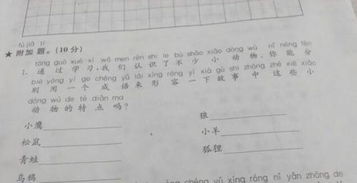 fù jiā tí
★ 附加题。(10分)
tōng guò xué xí wǒ men rèn shi le bù shǎo xiǎo dòng wù nǐ néng fēn
1. 通过学习,我们认识了不少小动物,你能分
bié yòng yí gè chéng yǔ lái xíng róng yí xià gù shi zhōng zhè xiē xiǎo
别用一个成语来形容一下故事中这些小
dòng wù de tè diǎn ma
动物的特点吗?
小鹰
狼
松鼠
小羊
青蛙
狐狸
乌鸦
chéng yǔ xíng róng nǐ yǎn zhōng de